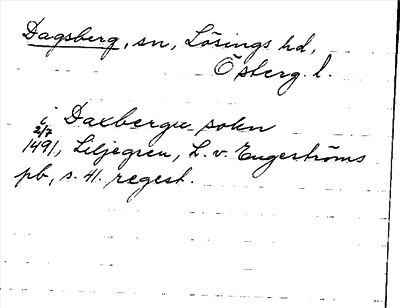 Dagsberg, sn, Lösings hd,
Österg. l.
i Daxbergu sokn
2/7
1491, Liljegren, L. v. Engeströms
pb, s. 41. regest.